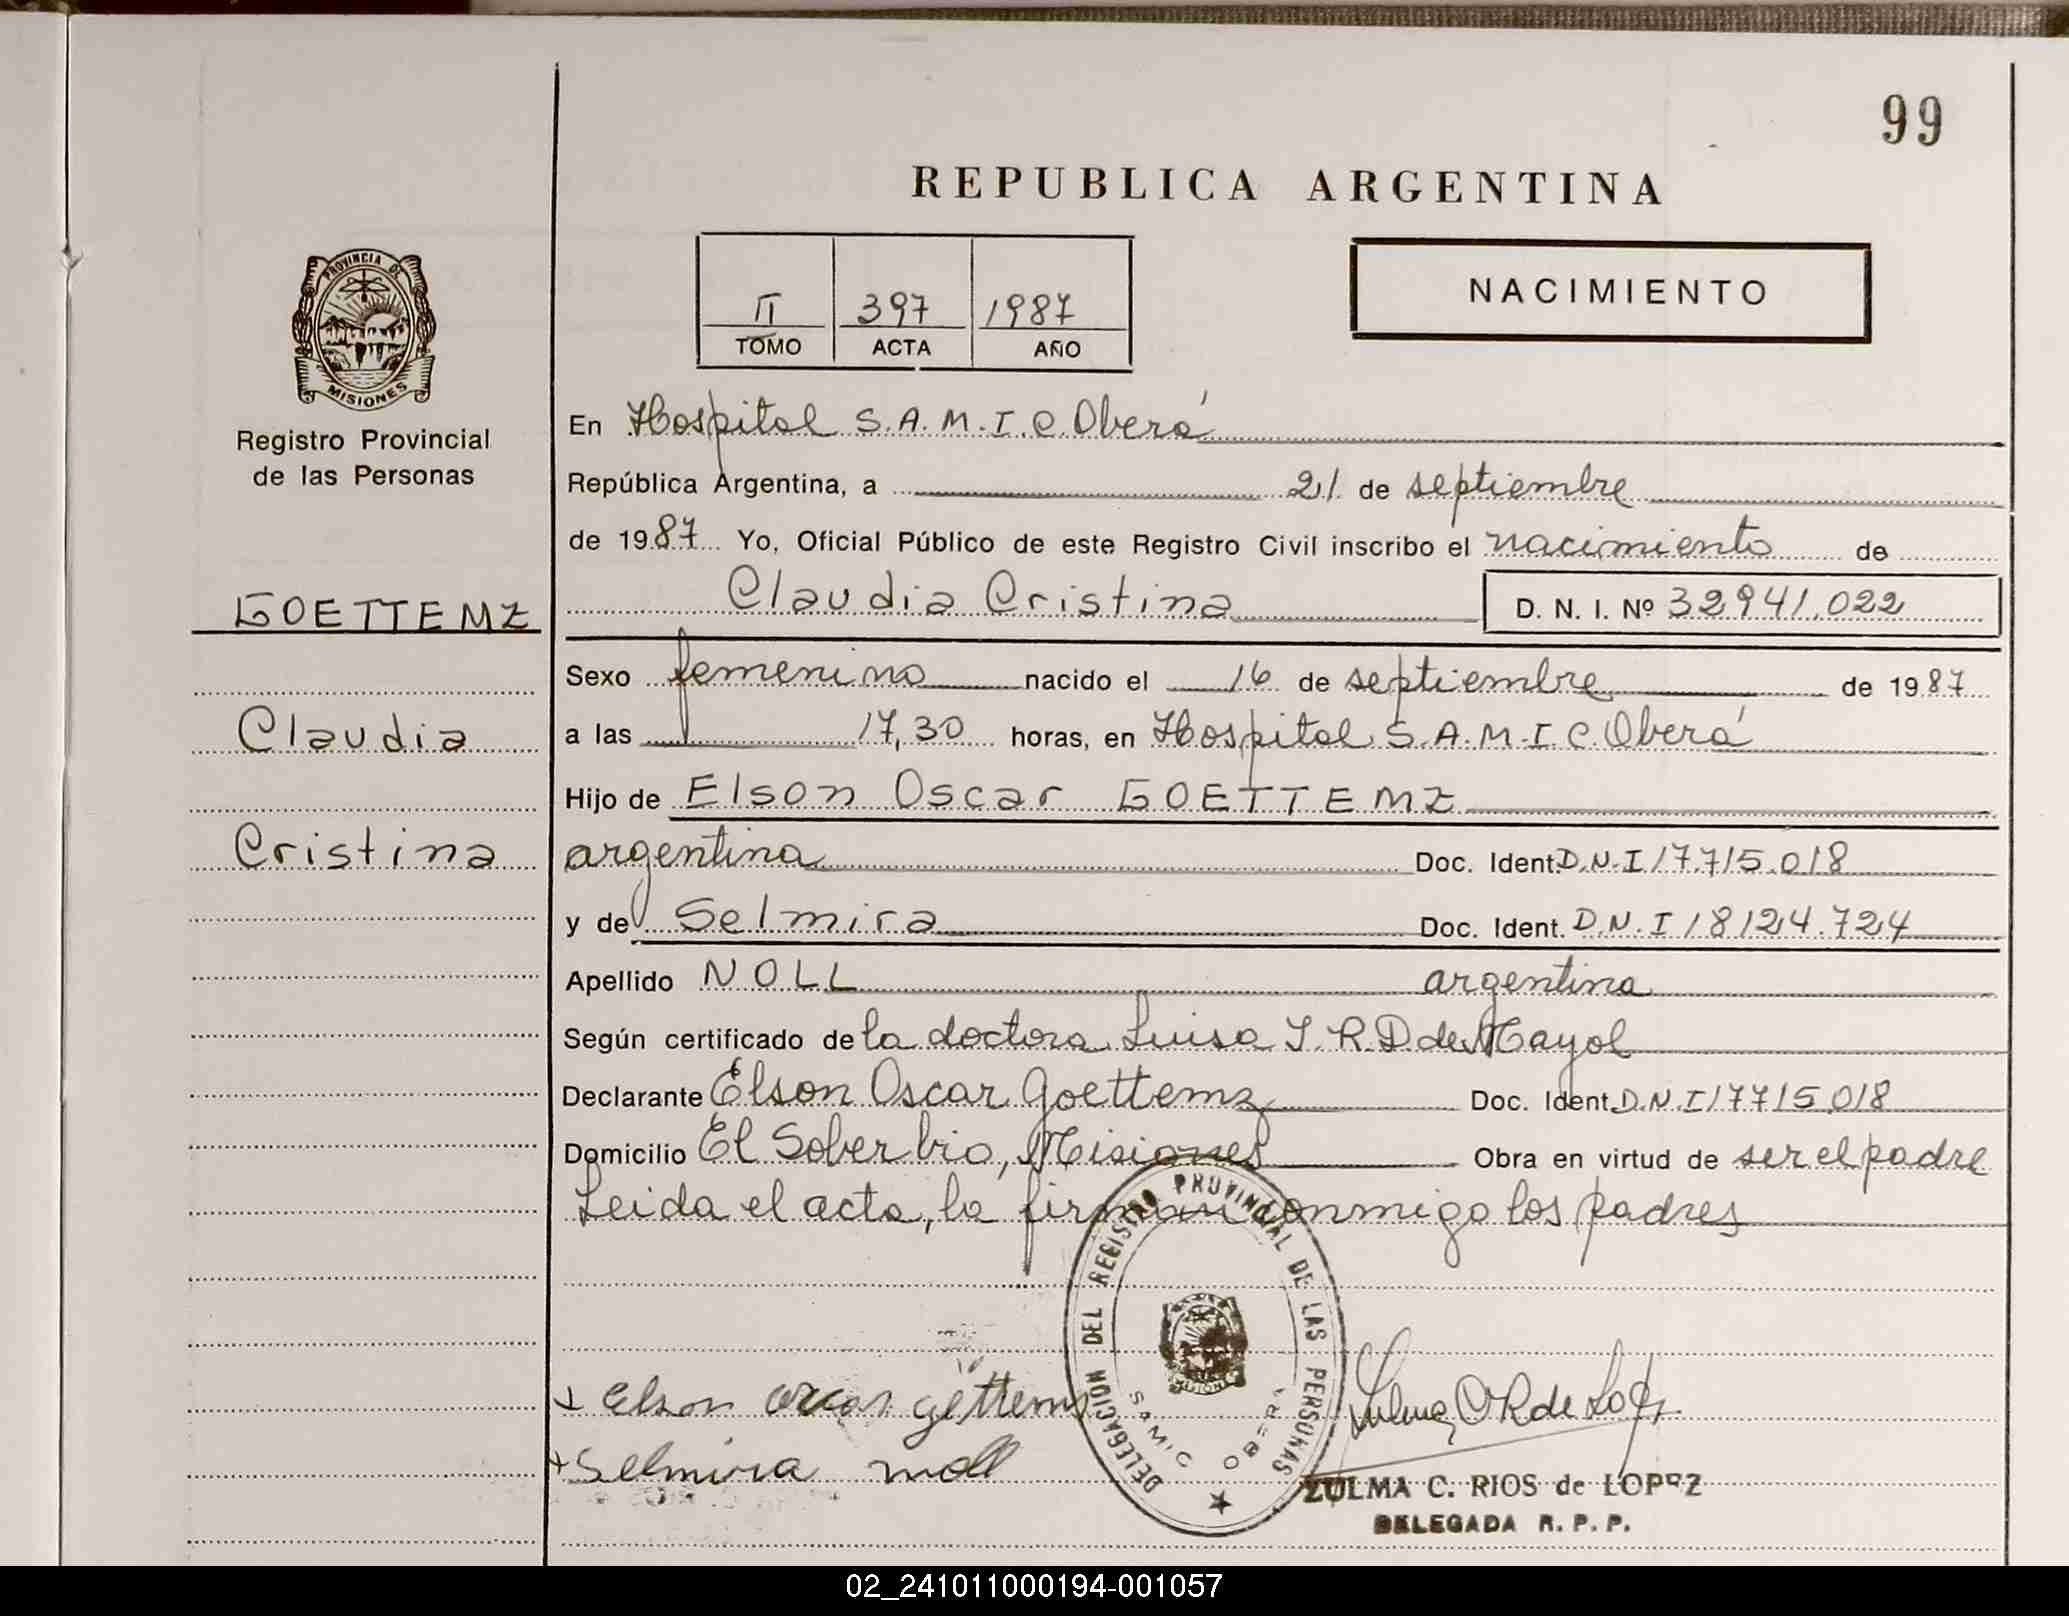 99
REPUBLICA ARGENTINA
PROVINCIA DE
MISIONES
Registro Provincial
de las Personas
II 397 1987
TOMO ACTA AÑO
NACIMIENTO
En Hospital S.A.M.I.C. Oberá
República Argentina, a 21 de septiembre
de 1987 Yo, Oficial Público de este Registro Civil inscribo el nacimiento de
GOETTEMZ
Claudia Cristina D. N. I. Nº 32941.022
Sexo femenino nacido el 16 de septiembre de 1987
Claudia
a las 17,30 horas, en Hospital S.A.M.I.C. Oberá
Hijo de Elson Oscar GOETTEMZ
Cristina
argentina Doc. Ident. D.N.I 17.715.018
y de Selmira Doc. Ident. D.N.I 18124.724
Apellido NOLL argentina
Según certificado de la doctora Luisa I. R. D. de Mayol
Declarante Elson Oscar Goettemz Doc. Ident. D.N.I 17715.018
Domicilio El Soberbio, Misiones Obra en virtud de ser el padre
Leida el acta, la firman conmigo los padres
DELEGACION DEL REGISTRO PROVINCIAL DE LAS PERSONAS
MISIONES
SAMIC OBERA
Elson Oscar gettems
Selmira noll
Zulma C R de Lopez
ZULMA C. RIOS de LOPEZ
DELEGADA R. P. P.
02_241011000194-001057